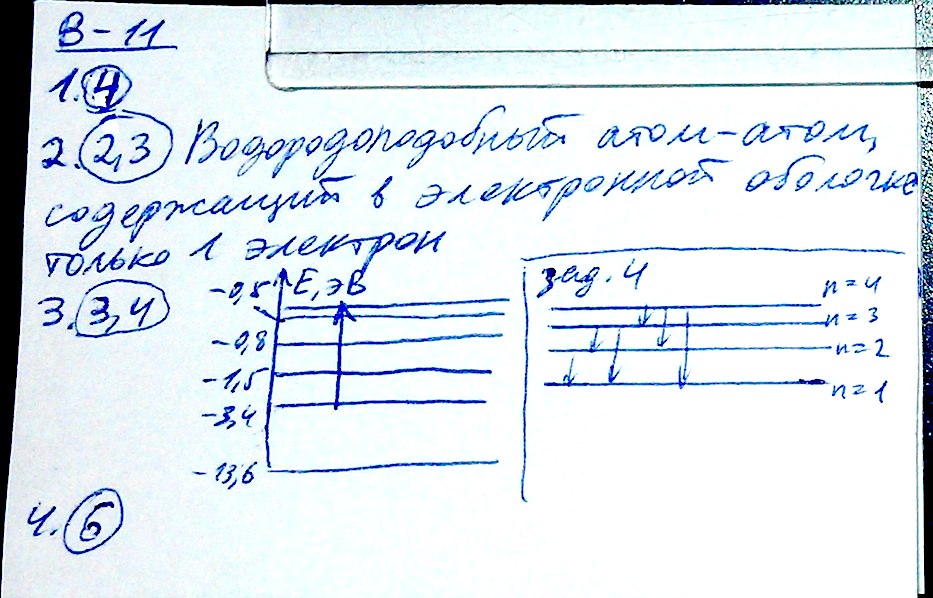 В-11
1. 4
2. 2,3 Водородоподобный атом-атом,
содержащий в электронной оболочке
только 1 электрон
3. 3,4
-0,5 E, эВ
-0,8
-1,5
-3,4
-13,6
зад. 4
n=4
n=3
n=2
n=1
4. 6